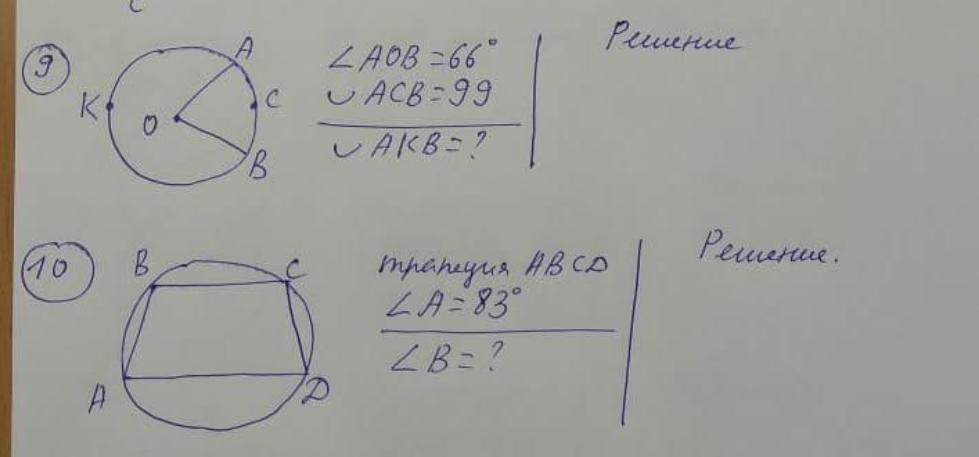 9
A
K
C
O
B
∠AOB = 66°
◡ ACB = 99
◡ AKB = ?
Решение
10
B
C
A
D
трапеция ABCD
∠A = 83°
∠B = ?
Решение.